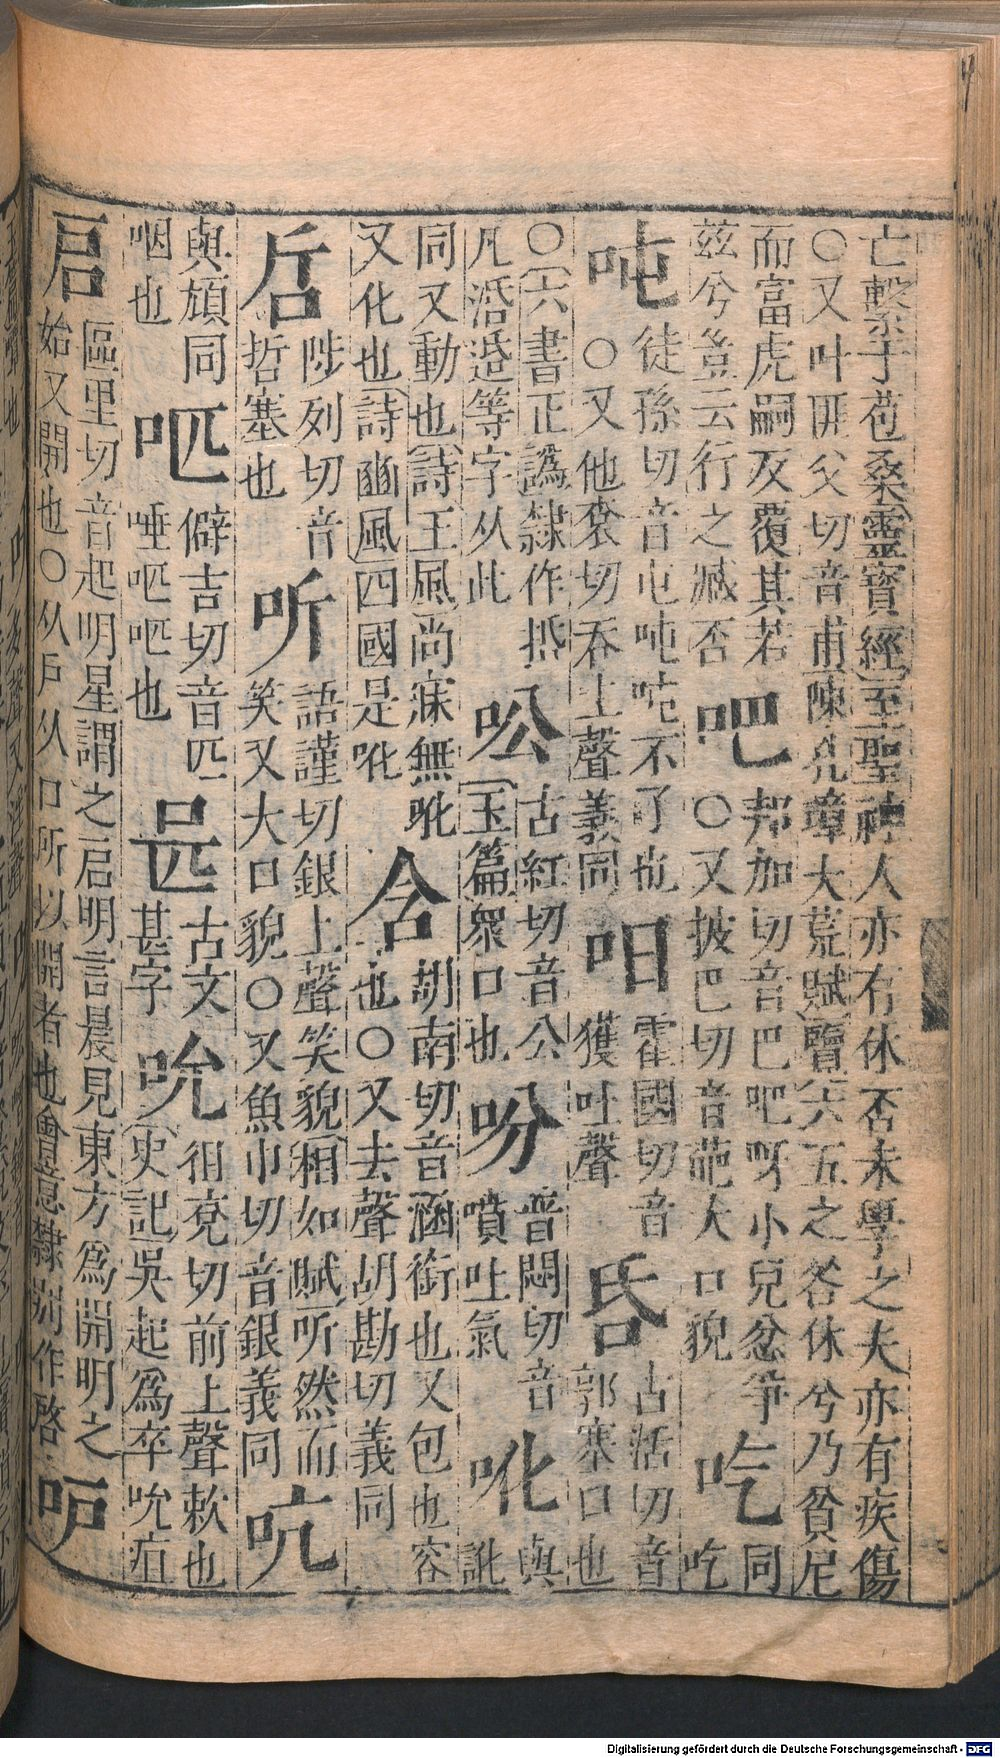 亡繫于苞桑靈寶經至聖神人亦有休否未學之夫亦有疾傷
○又叶匪父切音甫陳孔璋大荒賦覽六五之咎休兮乃貧尼
而富虎嗣反覆其若
茲兮豈云行之臧否
吧
邦加切音巴吧呀小兒忿爭
○又披巴切音葩大口貌
吃
同
吃
吨
徒孫切音屯吨吨不了也
○又他袞切吞上聲義同
呾
霍國切音
獲吐聲
𠯑
古活切音
郭塞口也
○六書正譌隸作括
凡活适等字从此
㕬
古紅切音公
玉篇衆口也
吩
普悶切音
噴吐氣
吪
與
訛
同又動也詩王風尚寐無吪
又化也詩豳風四國是吪
含
胡南切音涵銜也又包也容
也○又去聲胡勘切義同
陟列切音
哲塞也
听
語謹切銀上聲笑貌相如賦听然而
笑又大口貌○又魚巾切音銀義同
吭
與頏同
咽也
㕸
僻吉切音匹
唾㕸㕸也
古文
甚字
吮
徂兗切前上聲欶也
史記吳起爲卒吮疽
启
區里切音起明星謂之启明言晨見東方爲開明之
始又開也○从戶从口所以開者也會意隸別作啓
Digitalisierung gefördert durch die Deutsche Forschungsgemeinschaft - DFG